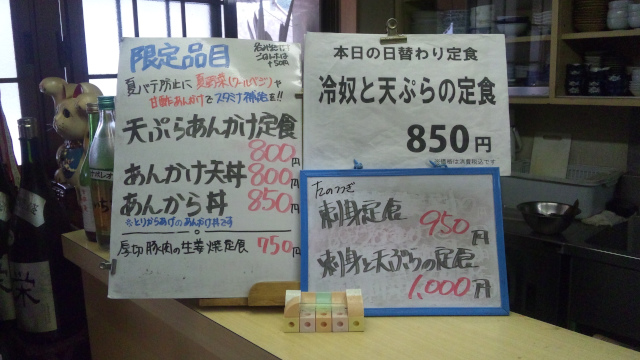 限定品目
夏バテ防止に夏野菜(クールベジ)や
甘酢あんかけでスタミナ補給を!!
天ぷらあんかけ定食
800円
あんかけ天丼 800円
あんから丼 850円
とりからあげのあんかけ丼です
厚切豚肉の生姜焼定食 750円
本日の日替わり定食
冷奴と天ぷらの定食
850円
※価格は消費税込です
たのつぎ
刺身定食 950円
刺身と天ぷらの定食
1,000円
栄